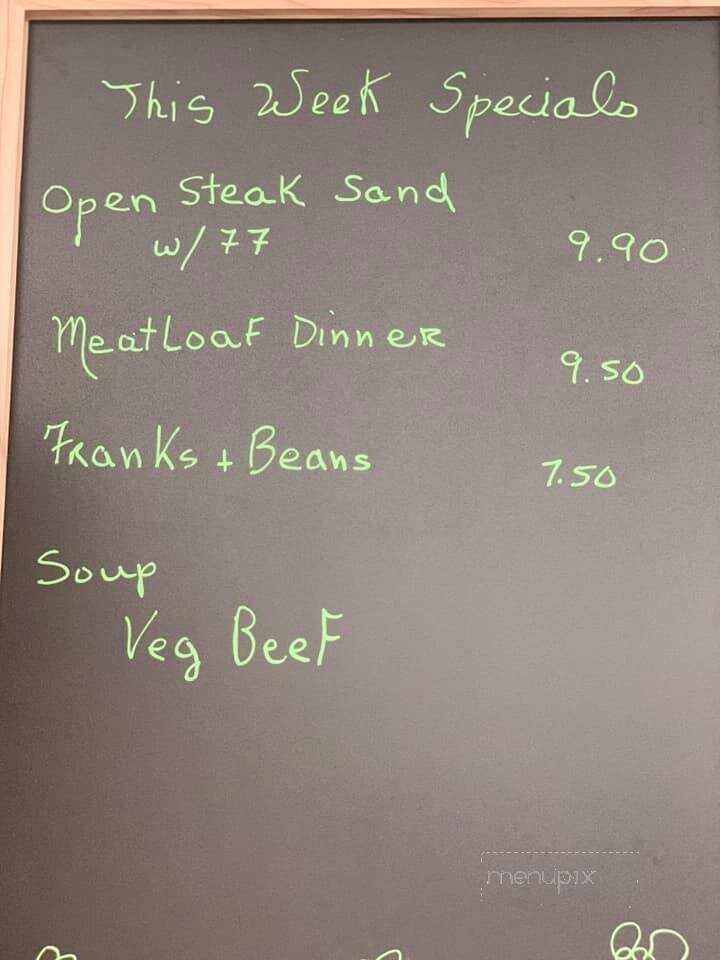 This Week Specials
Open Steak Sand
w/ FF 9.90
MeatLoaf Dinner
9.50
Franks + Beans 7.50
Soup
Veg Beef
menupix